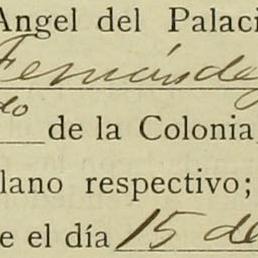 Angel del Palaci
Fernández
do
de la Colonia,
lano respectivo;
e el día 15 de